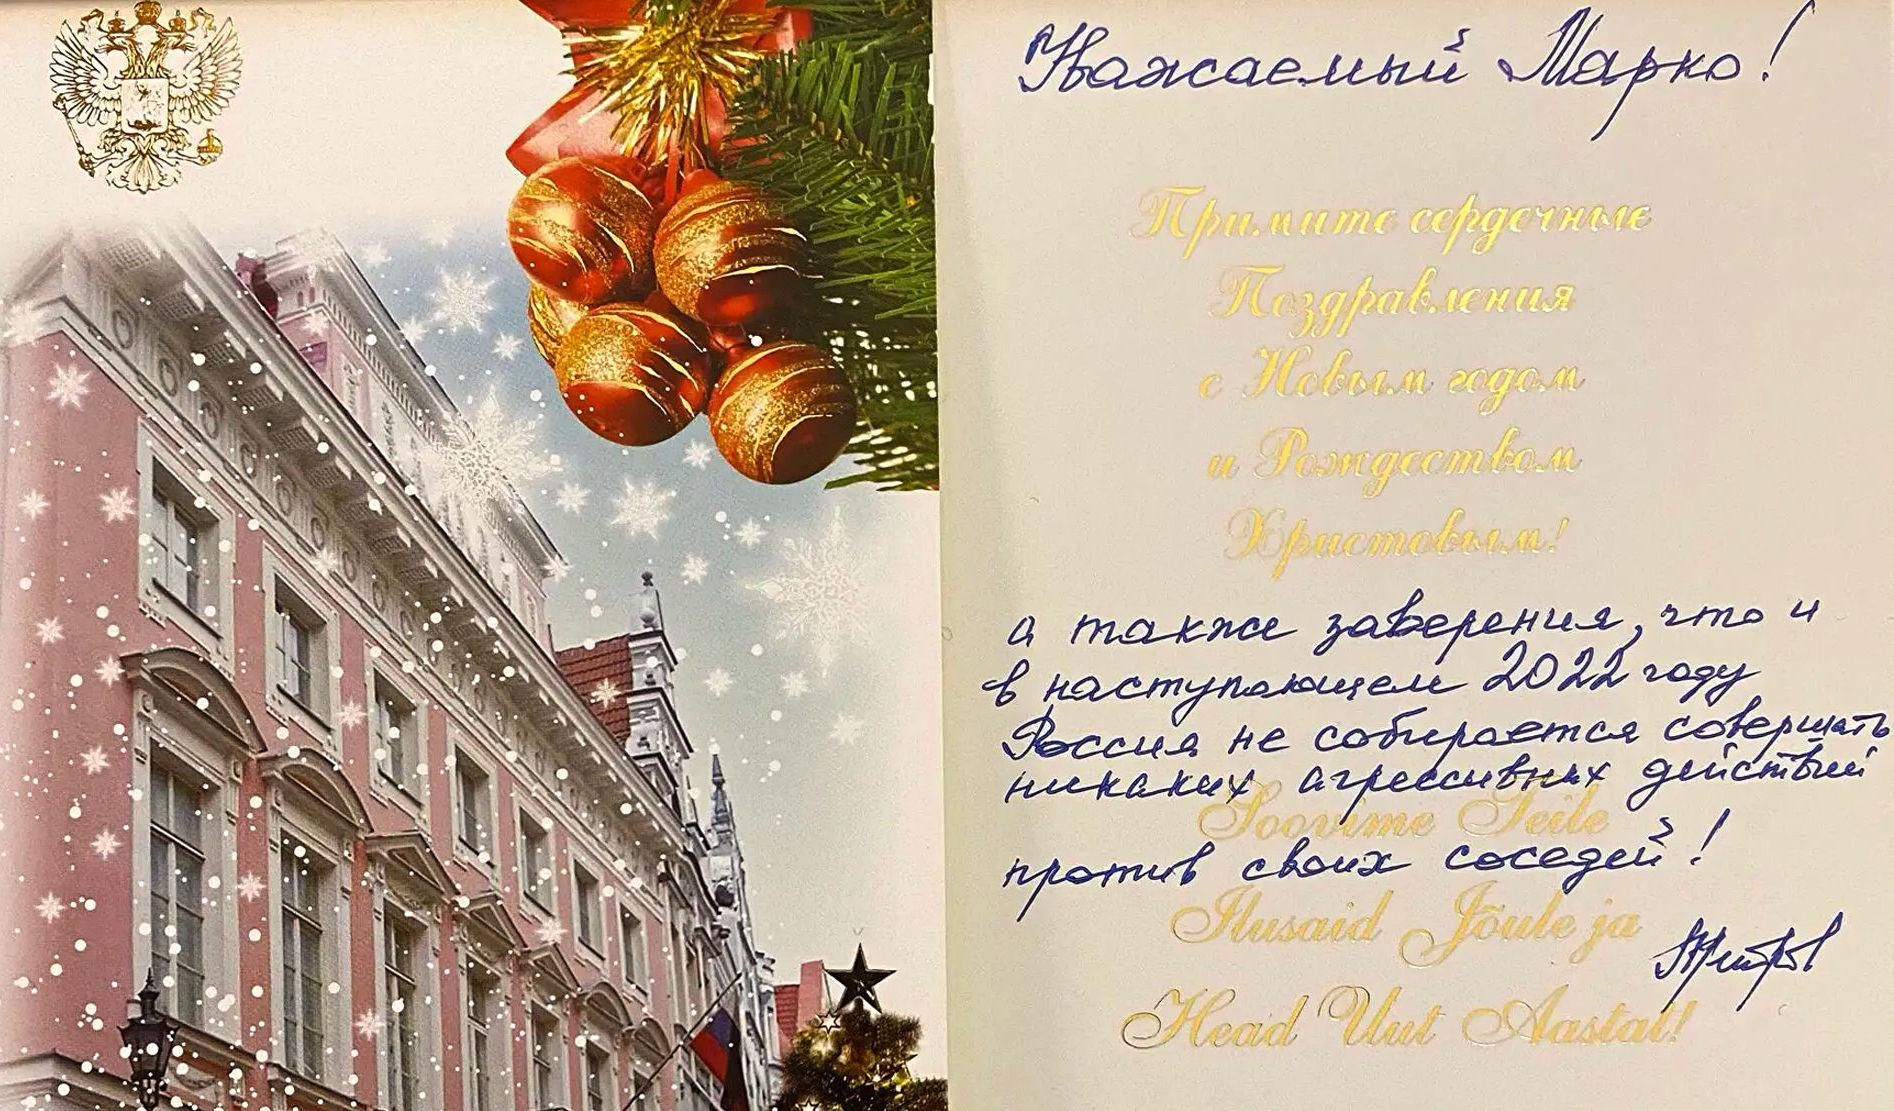 Уважаемый Марко!
Примите сердечные
Поздравления
с Новым годом
и Рождеством
Христовым!
а также заверения, что и
в наступающем 2022 году
Россия не собирается совершать
никаких агрессивных действий
Soovime Teile
против своих соседей!
Ilusaid Jõule ja
Head Uut Aastat!